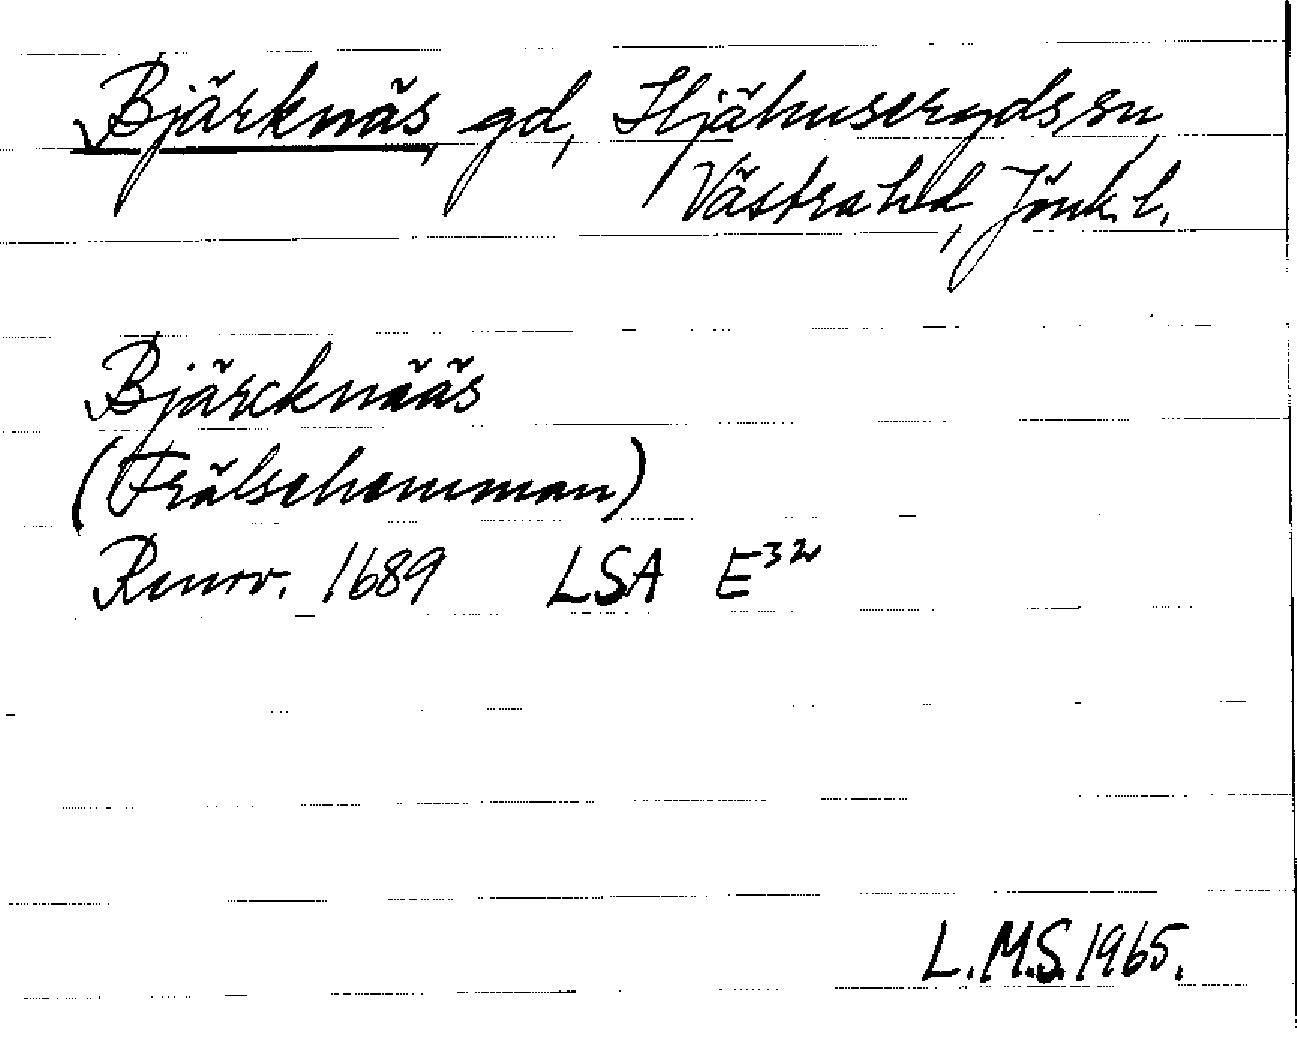 Bjärknäs, gd, Hjähusergds sn,
Västra hd, Jönk. l.
Bjärcknääs
(Frälsehemman)
Renov. 1689 LSA E³²
L.M.S. 1965.